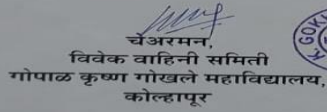 चेअरमन,
विवेक वाहिनी समिती
गोपाळ कृष्ण गोखले महाविद्यालय,
कोल्हापूर